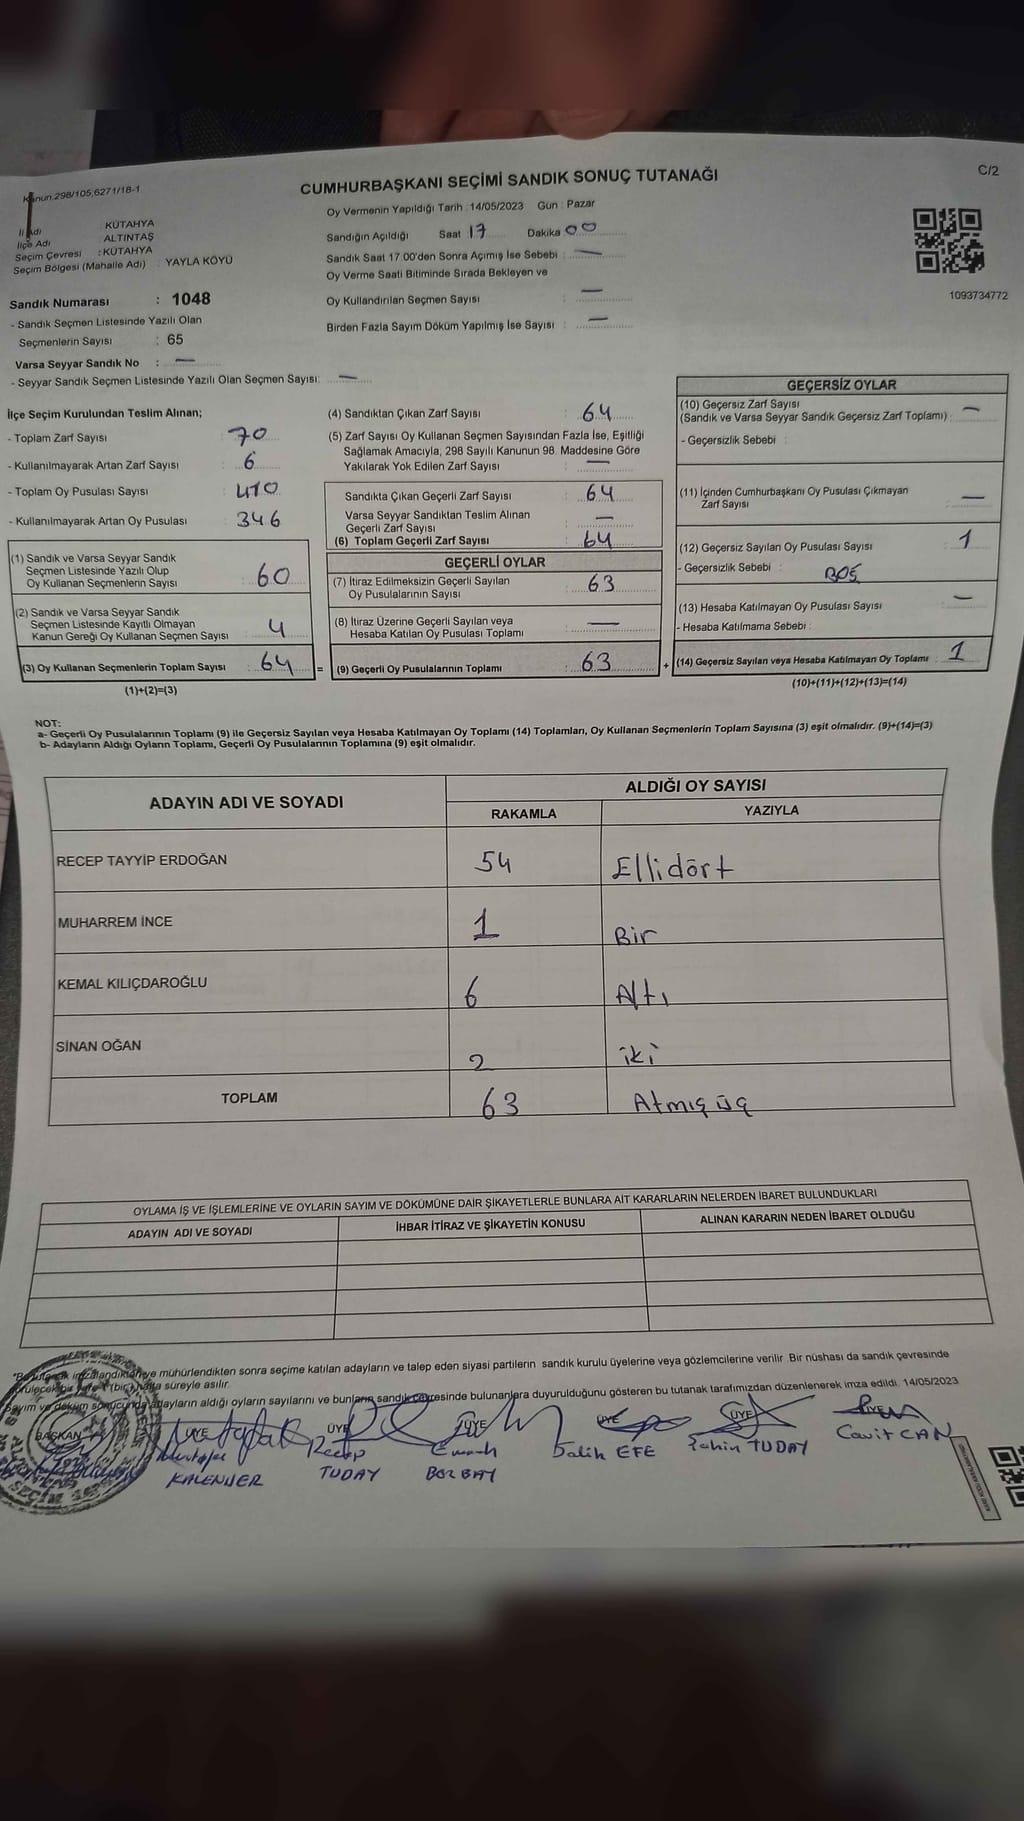 Kanun.298/105,6271/18-1
CUMHURBAŞKANI SEÇİMİ SANDIK SONUÇ TUTANAĞI
C/2
İl Adı : KÜTAHYA
İlçe Adı : ALTINTAŞ
Seçim Çevresi : KÜTAHYA
Seçim Bölgesi (Mahalle Adı) : YAYLA KÖYÜ
Oy Vermenin Yapıldığı Tarih : 14/05/2023 Gün : Pazar
Sandığın Açıldığı Saat 17 Dakika 00
Sandık Saat 17.00'den Sonra Açımış İse Sebebi : —
Oy Verme Saati Bitiminde Sırada Bekleyen ve
Oy Kullandırılan Seçmen Sayısı : —
Birden Fazla Sayım Döküm Yapılmış İse Sayısı : —
1093734772
Sandık Numarası : 1048
- Sandık Seçmen Listesinde Yazılı Olan
Seçmenlerin Sayısı : 65
Varsa Seyyar Sandık No : —
- Seyyar Sandık Seçmen Listesinde Yazılı Olan Seçmen Sayısı: —
İlçe Seçim Kurulundan Teslim Alınan;
- Toplam Zarf Sayısı : 70
- Kullanılmayarak Artan Zarf Sayısı : 6
- Toplam Oy Pusulası Sayısı : 410
- Kullanılmayarak Artan Oy Pusulası : 346
(1) Sandık ve Varsa Seyyar Sandık
Seçmen Listesinde Yazılı Olup
Oy Kullanan Seçmenlerin Sayısı : 60
(2) Sandık ve Varsa Seyyar Sandık
Seçmen Listesinde Kayıtlı Olmayan
Kanun Gereği Oy Kullanan Seçmen Sayısı : 4
(3) Oy Kullanan Seçmenlerin Toplam Sayısı : 64 =
(1)+(2)=(3)
(4) Sandıktan Çıkan Zarf Sayısı : 64
(5) Zarf Sayısı Oy Kullanan Seçmen Sayısından Fazla İse, Eşitliği
Sağlamak Amacıyla, 298 Sayılı Kanunun 98. Maddesine Göre
Yakılarak Yok Edilen Zarf Sayısı : —
Sandıkta Çıkan Geçerli Zarf Sayısı : 64
Varsa Seyyar Sandıktan Teslim Alınan
Geçerli Zarf Sayısı : —
(6) Toplam Geçerli Zarf Sayısı : 64
GEÇERLİ OYLAR
(7) İtiraz Edilmeksizin Geçerli Sayılan
Oy Pusulalarının Sayısı : 63
(8) İtiraz Üzerine Geçerli Sayılan veya
Hesaba Katılan Oy Pusulası Toplamı : —
(9) Geçerli Oy Pusulalarının Toplamı : 63 +
GEÇERSİZ OYLAR
(10) Geçersiz Zarf Sayısı
(Sandık ve Varsa Seyyar Sandık Geçersiz Zarf Toplamı) : —
- Geçersizlik Sebebi :
(11) İçinden Cumhurbaşkanı Oy Pusulası Çıkmayan
Zarf Sayısı : —
(12) Geçersiz Sayılan Oy Pusulası Sayısı : 1
- Geçersizlik Sebebi : BOŞ
(13) Hesaba Katılmayan Oy Pusulası Sayısı : —
- Hesaba Katılmama Sebebi :
(14) Geçersiz Sayılan veya Hesaba Katılmayan Oy Toplamı : 1
(10)+(11)+(12)+(13)=(14)
NOT:
a- Geçerli Oy Pusulalarının Toplamı (9) ile Geçersiz Sayılan veya Hesaba Katılmayan Oy Toplamı (14) Toplamları, Oy Kullanan Seçmenlerin Toplam Sayısına (3) eşit olmalıdır. (9)+(14)=(3)
b- Adayların Aldığı Oyların Toplamı, Geçerli Oy Pusulalarının Toplamına (9) eşit olmalıdır.
ADAYIN ADI VE SOYADI
ALDIĞI OY SAYISI
RAKAMLA YAZIYLA
RECEP TAYYİP ERDOĞAN 54 Ellidört
MUHARREM İNCE 1 Bir
KEMAL KILIÇDAROĞLU 6 Altı
SİNAN OĞAN 2 iki
TOPLAM 63 Atmış üç
OYLAMA İŞ VE İŞLEMLERİNE VE OYLARIN SAYIM VE DÖKÜMÜNE DAİR ŞİKAYETLERLE BUNLARA AİT KARARLARIN NELERDEN İBARET BULUNDUKLARI
ADAYIN ADI VE SOYADI İHBAR İTİRAZ VE ŞİKAYETİN KONUSU ALINAN KARARIN NEDEN İBARET OLDUĞU
mühürlendikten sonra seçime katılan adayların ve talep eden siyasi partilerin sandık kurulu üyelerine veya gözlemcilerine verilir. Bir nüshası da sandık çevresinde
süreyle asılır.
adayların aldığı oyların sayılarını ve bunların sandık çevresinde bulunanlara duyurulduğunu gösteren bu tutanak tarafımızdan düzenlenerek imza edildi. 14/05/2023
BAŞKAN ÜYE ÜYE ÜYE ÜYE ÜYE ÜYE
Mustafa KALENDER
Recep TUDAY
Emrah BOZBAY
Salih EFE
Şahin TUDAY
Cavit CAN